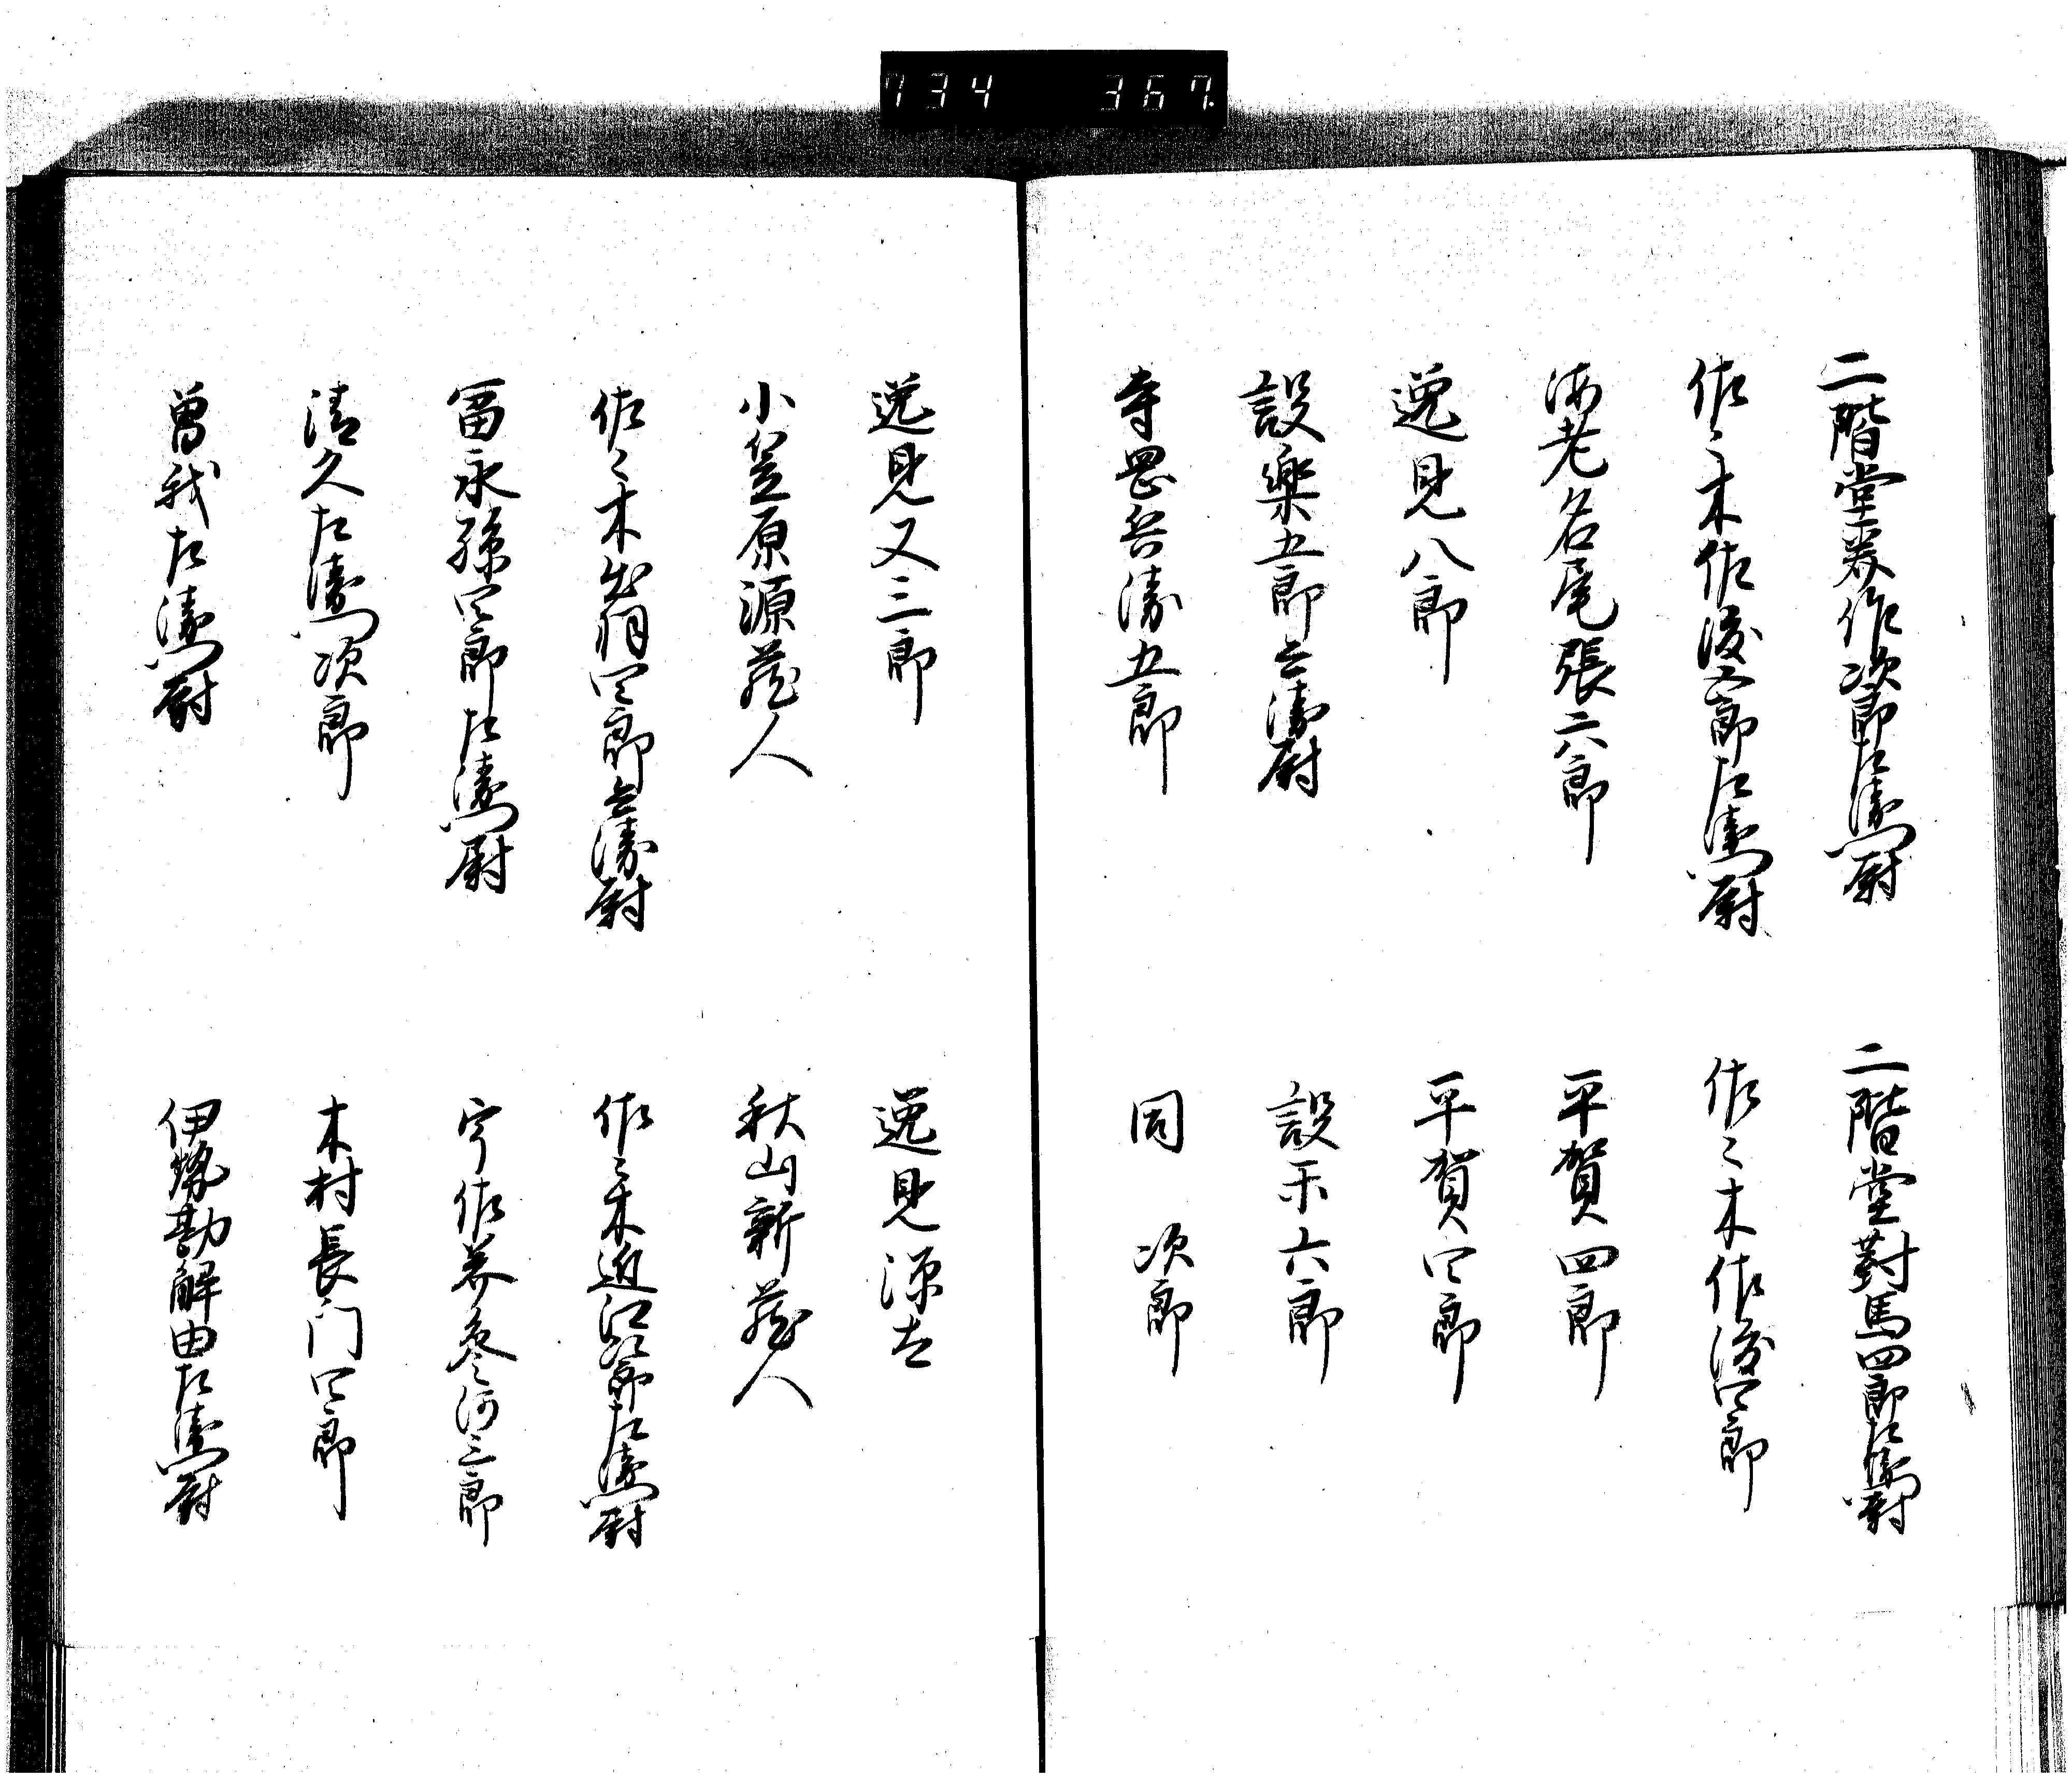 734 367
二階堂美作次郎左衛門尉
二階堂對馬四郎左衛門尉
佐々木佐渡五郎左衛門尉
佐々木佐渡四郎
海老名尾張六郎
平賀四郎
逸見八郎
平賀四郎
設樂五郎兵衛尉
設楽六郎
寺岡兵衛五郎
同 次郎
逸見又三郎
逸見源太
小笠原源蔵人
秋山新蔵人
佐々木出羽四郎兵衛尉
佐々木近江次郎左衛門尉
冨永孫四郎左衛門尉
宇佐美参河三郎
清久左衛門次郎
木村長門四郎
曽我左衛門尉
伊勢勘解由左衛門尉